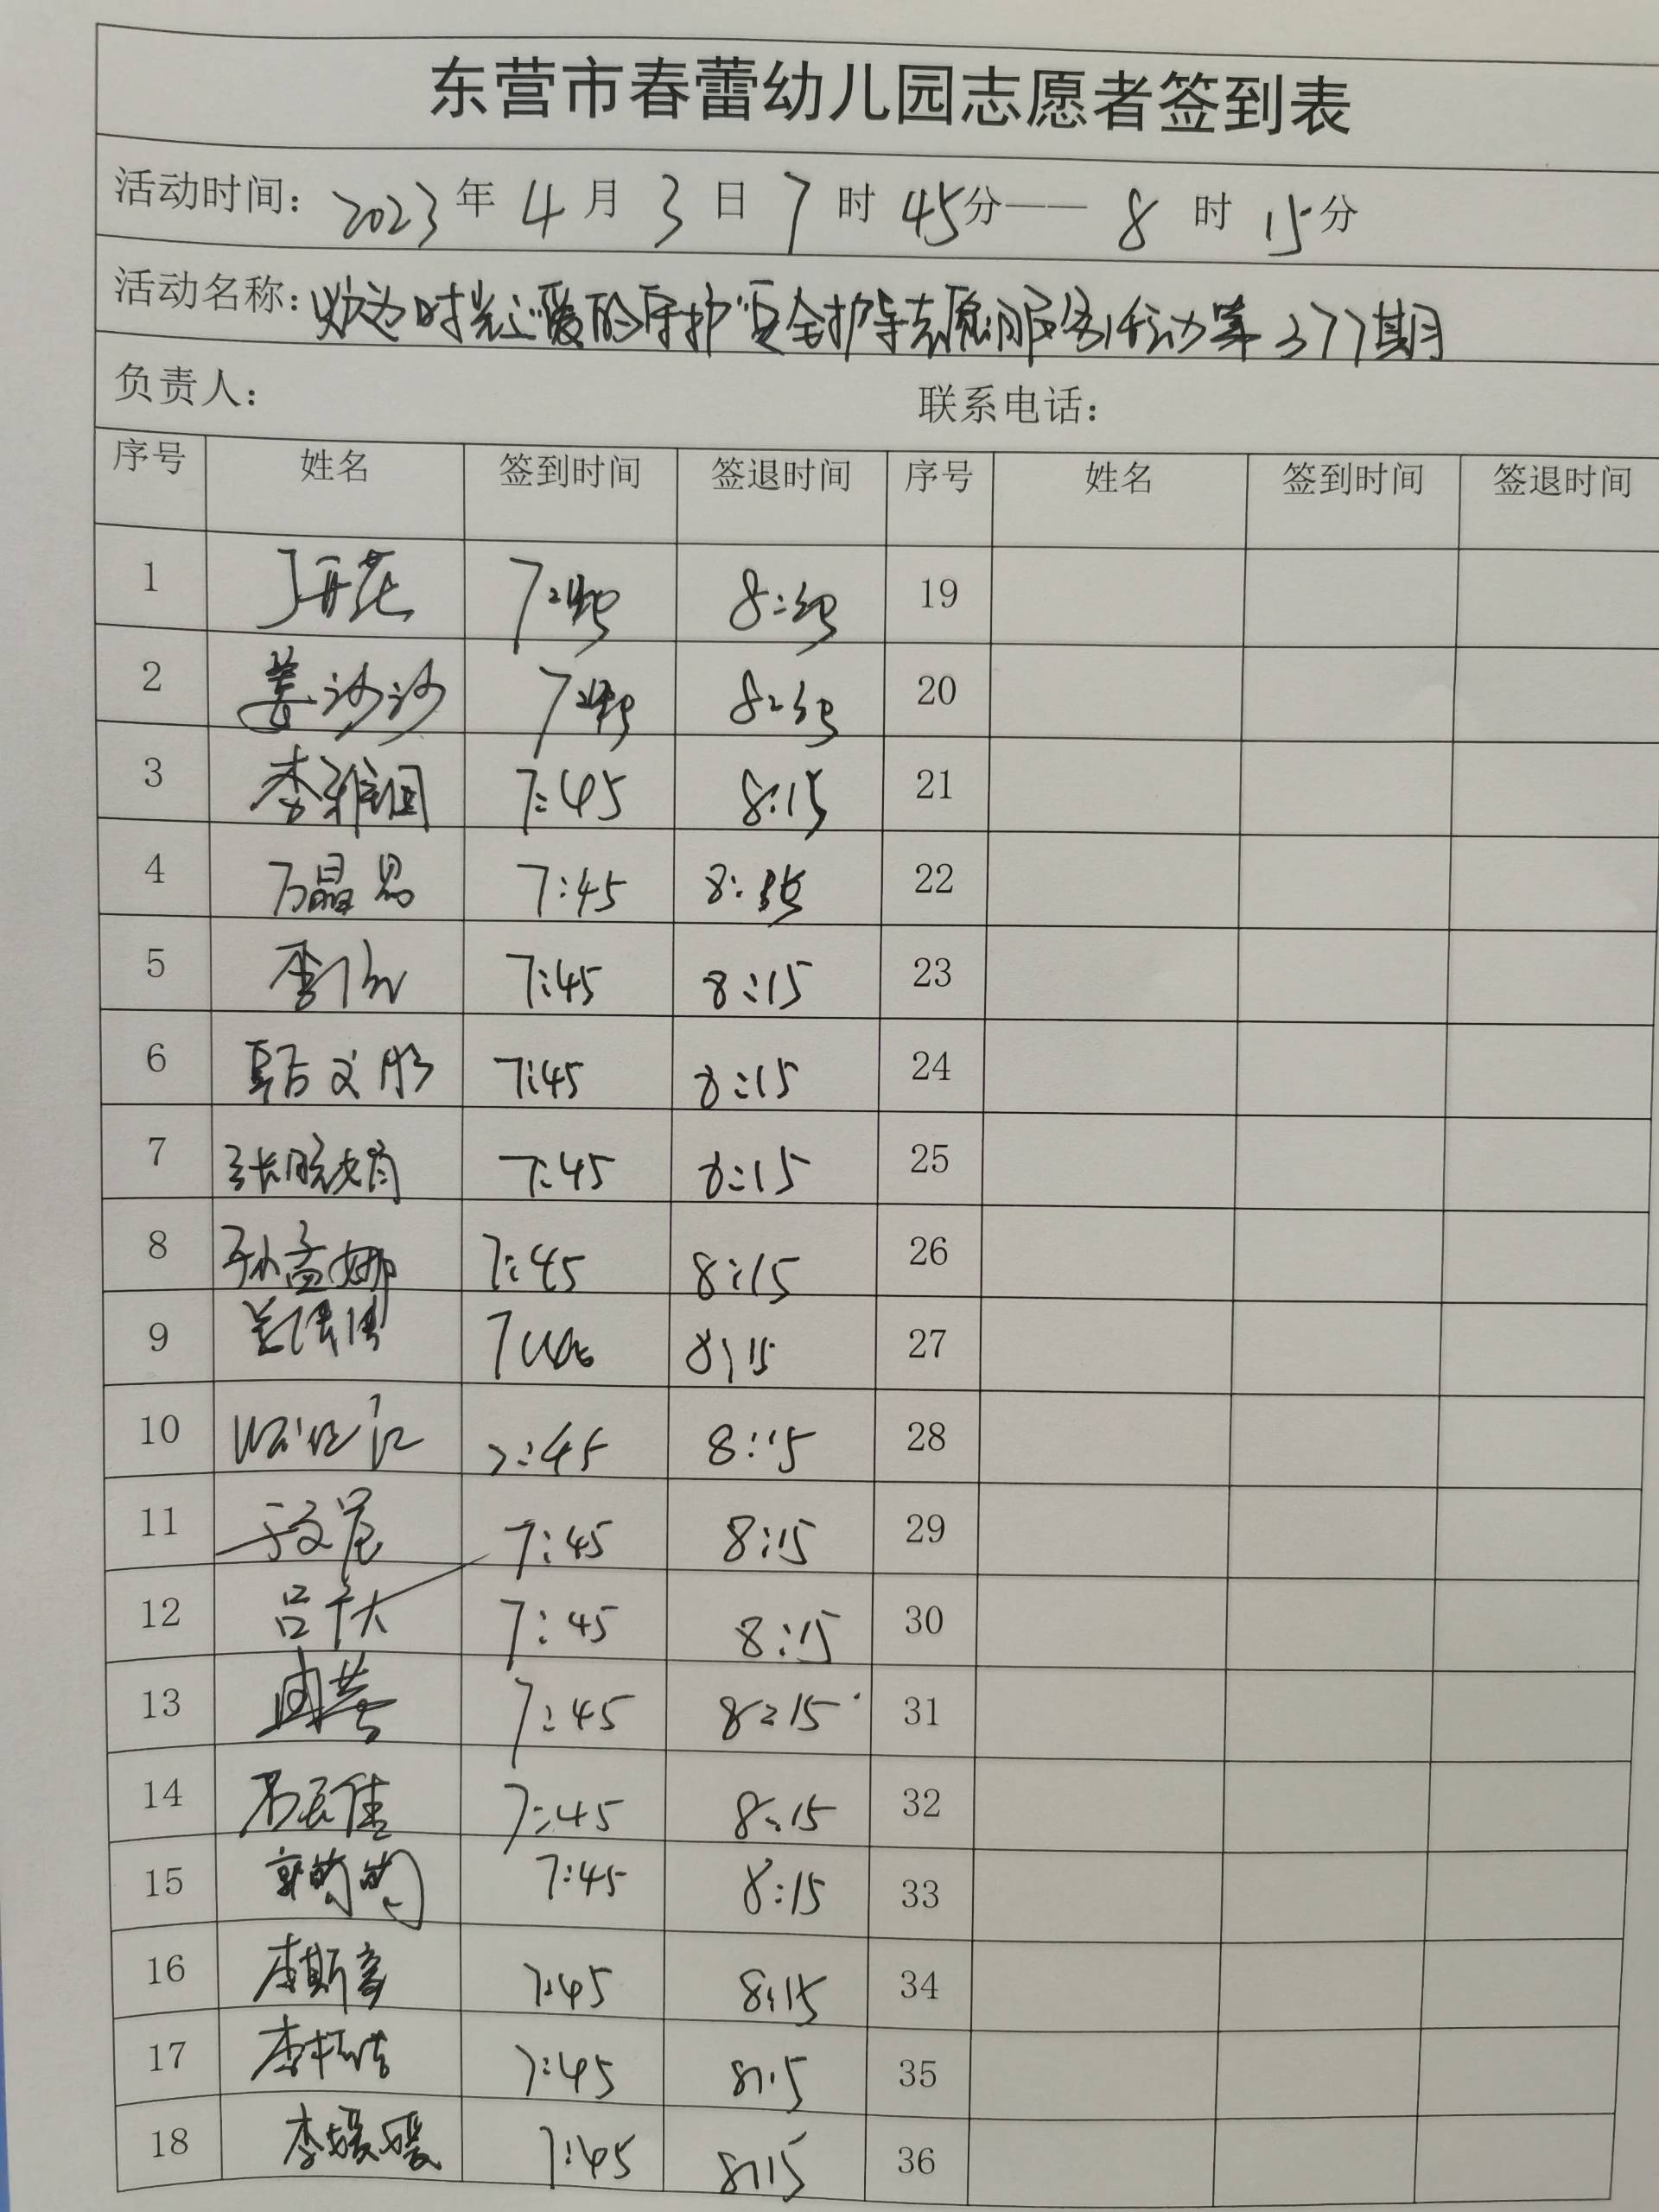 东营市春蕾幼儿园志愿者签到表
活动时间：2023年4月3日7时45分——8时15分
活动名称：时光 爱的守护 安全护导志愿服务活动第377期
负责人： 联系电话：
序号 姓名 签到时间 签退时间 序号 姓名 签到时间 签退时间
1 7:45 19
2 姜沙沙 7:45 20
3 李雅 7:45 8:15 21
4 万晶 7:45 8: 22
5 李 7:45 8:15 23
6 韩文 7:45 8:15 24
7 张晓娟 7:45 8:15 25
8 孙孟娜 7:45 8:15 26
9 8:15 27
10 7:45 8:15 28
11 于文 7:45 8:15 29
12 吕 7:45 8:15 30
13 7:45 8:15 31
14 7:45 8:15 32
15 郭 7:45 8:15 33
16 李斯 7:45 8:15 34
17 李 7:45 8:15 35
18 李媛媛 7:45 8:15 36